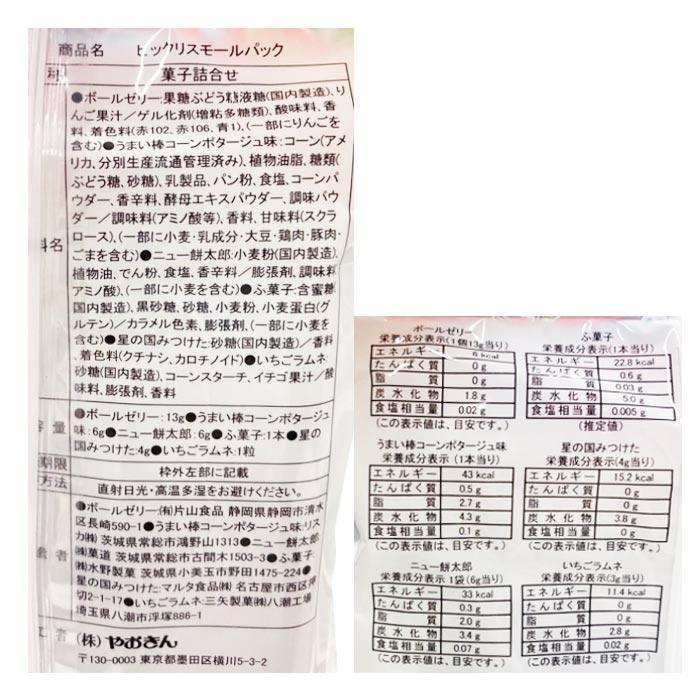 商品名 ビックリスモールパック
菓子詰合せ
●ボールゼリー:果糖ぶどう糖液糖(国内製造)、り
んご果汁／ゲル化剤(増粘多糖類)、酸味料、香
料、着色料(赤102、赤106、青1)、(一部にりんごを
含む)●うまい棒コーンポタージュ味:コーン(アメ
リカ、分別生産流通管理済み)、植物油脂、糖類(
ぶどう糖、砂糖)、乳製品、パン粉、食塩、コーンパ
ウダー、香辛料、酵母エキスパウダー、調味パウ
ダー／調味料(アミノ酸等)、香料、甘味料(スクラ
料名 ロース)、(一部に小麦・乳成分・大豆・鶏肉・豚肉・
ごまを含む)●ニュー餅太郎:小麦粉(国内製造)、
植物油、でん粉、食塩、香辛料／膨張剤、調味料
アミノ酸)、(一部に小麦を含む)●ふ菓子:含蜜糖
国内製造)、黒砂糖、砂糖、小麦粉、小麦蛋白(グ
ルテン)／カラメル色素、膨張剤、(一部に小麦を
含む)●星の国みつけた:砂糖(国内製造)／香料
、着色料(クチナシ、カロチノイド)●いちごラムネ:
砂糖(国内製造)、コーンスターチ、イチゴ果汁／酸
味料、膨張剤、香料
●ボールゼリー:13g●うまい棒コーンポタージュ
容量 味:6g●ニュー餅太郎:6g●ふ菓子:1本●星の
国みつけた:4g●いちごラムネ:1粒
期限 枠外左部に記載
方法 直射日光・高温多湿をお避けください。
●ボールゼリー:(有)片山食品 静岡県静岡市清水
区長崎590-1●うまい棒コーンポタージュ味:リス
カ㈱ 茨城県常総市鴻野山1313●ニュー餅太郎
者 ㈱菓道 茨城県常総市古間木1503-3●ふ菓子:
㈱水野製菓 茨城県小美玉市野田1475-224●
星の国みつけた:マルタ食品㈱ 名古屋市西区押
切2-1-17●いちごラムネ:三矢製菓㈱八潮工場
埼玉県八潮市浮塚886-1
者 (株) やおきん
〒130-0003 東京都墨田区横川5-3-2
ボールゼリー
栄養成分表示(1個13g当り)
エネルギー 6 kcal
たんぱく質 0 g
脂質 0 g
炭水化物 1.8 g
食塩相当量 0.02 g
(この表示値は、目安です。)
ふ菓子
栄養成分表示(1本当り)
エネルギー 22.8 kcal
たんぱく質 0.6 g
脂質 0.03 g
炭水化物 5.0 g
食塩相当量 0.005 g
(推定値)
うまい棒コーンポタージュ味
栄養成分表示 (1本当り)
エネルギー 43 kcal
たんぱく質 0.5 g
脂質 2.7 g
炭水化物 4.3 g
食塩相当量 0.1 g
(この表示値は、目安です。)
星の国みつけた
栄養成分表示(4g当り)
エネルギー 15.2 kcal
たんぱく質 0 g
脂質 0 g
炭水化物 3.8 g
食塩相当量 0 g
(この表示値は、目安です。)
ニュー餅太郎
栄養成分表示 1袋(6g当り)
エネルギー 33 kcal
たんぱく質 0.3 g
脂質 2.0 g
炭水化物 3.4 g
食塩相当量 0.07 g
(この表示値は、目安です。)
いちごラムネ
栄養成分表示(3g当り)
エネルギー 11.4 kcal
たんぱく質 0 g
脂質 0 g
炭水化物 2.8 g
食塩相当量 0.02 g
(この表示値は、目安です。)